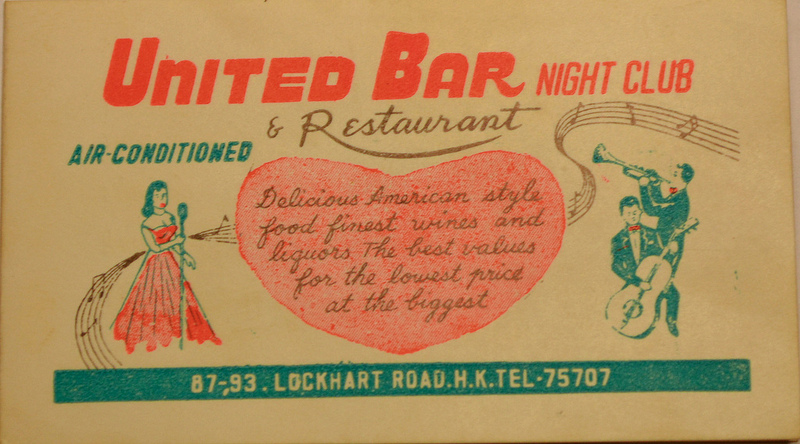 UNITED BAR NIGHT CLUB
& Restaurant
AIR-CONDITIONED
Delicious American style
food finest wines and
liquors The best values
for the lowest price
at the biggest
87-93. LOCKHART ROAD.H.K.TEL-75707